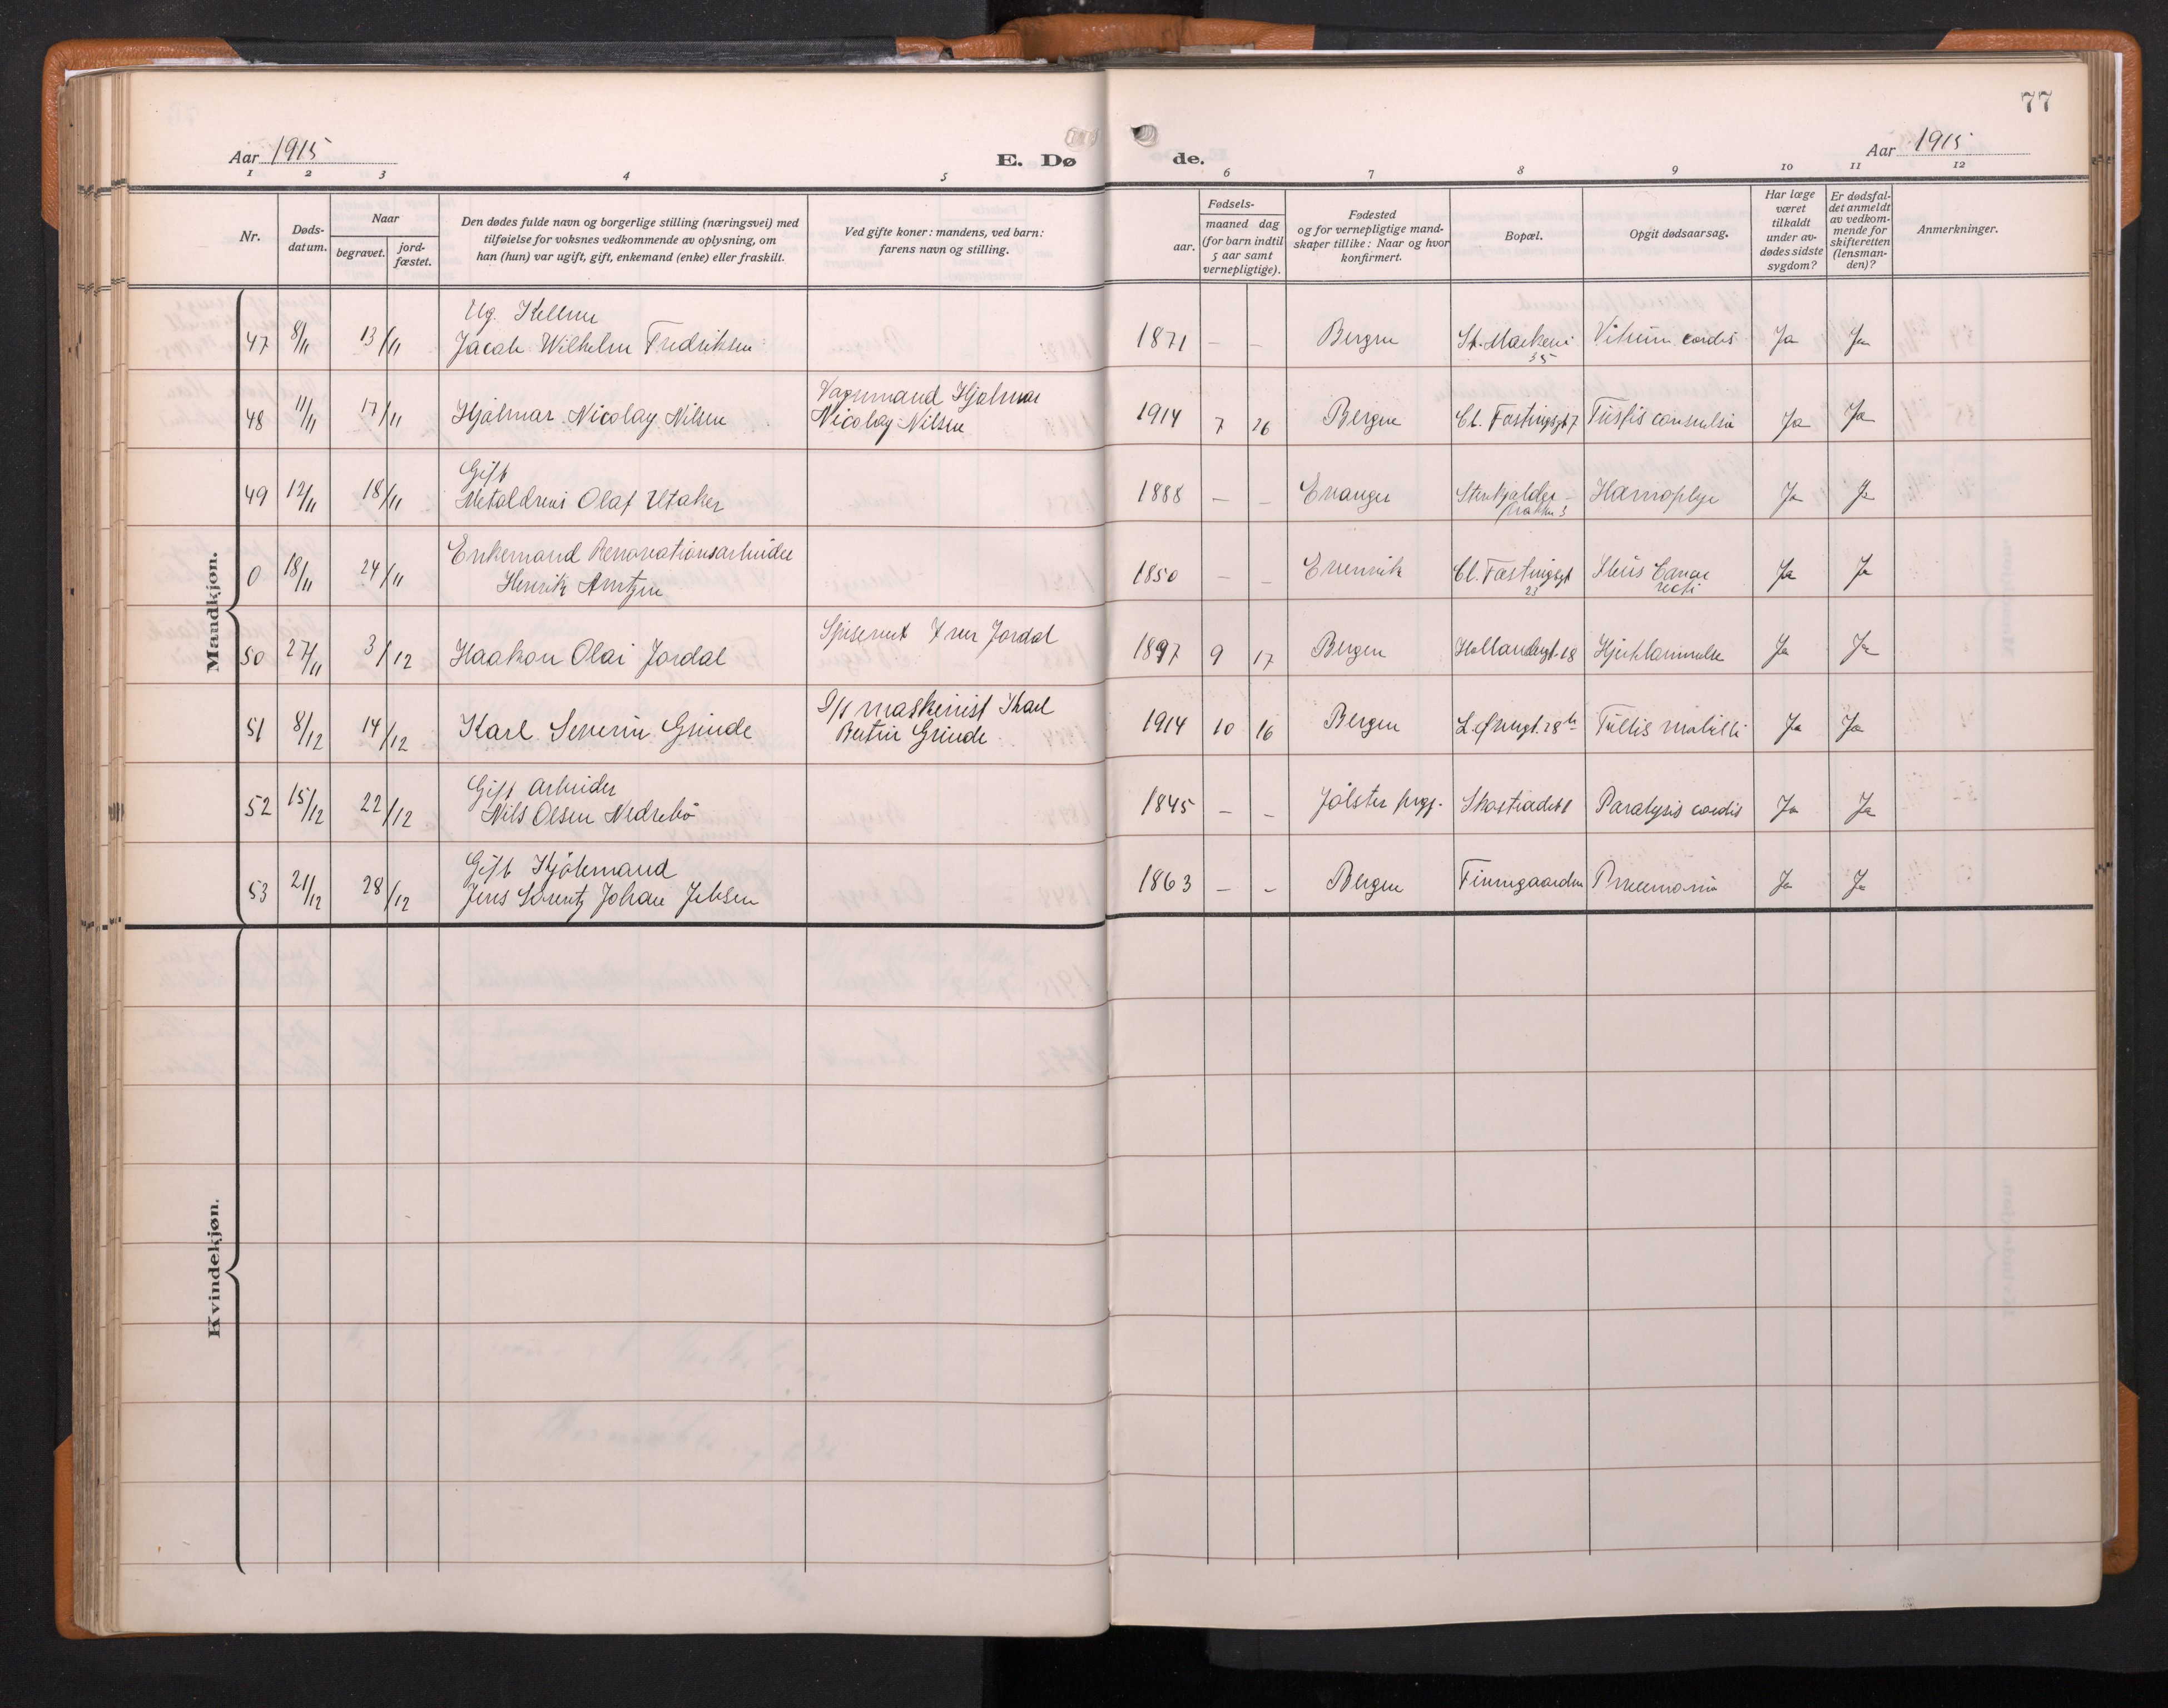 77
Aar 1915
E. Dø
de.
Aar 1915
1 2 3 4 5
6 7 8 9 10 11 12
Nr.
Døds-
datum.
Naar
begravet.
jord-
fæstet.
Den dødes fulde navn og borgerlige stilling (næringsvei) med
tilføielse for voksnes vedkommende av oplysning, om
han (hun) var ugift, gift, enkemand (enke) eller fraskilt.
Ved gifte koner: mandens, ved barn:
farens navn og stilling.
Fødsels-
aar.
maaned dag
(for barn indtil
5 aar samt
vernepligtige).
Fødested
og for vernepligtige mand-
skaper tillike: Naar og hvor
konfirmert.
Bopæl.
Opgit dødsaarsag.
Har læge
været
tilkaldt
under av-
dødes sidste
sygdom?
Er dødsfal-
det anmeldt
av vedkom-
mende for
skifteretten
(lensman-
den)?
Anmerkninger.
Mandkjøn.
Ug. Kellner
47 8/11 13/11 Jacob Wilhelm Fredriksen 1871 – – Bergen St. Markevei Vitium cordis Ja Ja
35
Vognmand Hjalmar
48 11/11 17/11 Hjalmar Nicolay Nilsen Nicolay Nilsen 1914 7 26 Bergen Cl. Fastingsgt 7 Tussis convulsiva Ja Ja
Gift
49 12/11 18/11 Metaldreier Olaf Utaker 1888 – – Evanger Stenkjelder- Hæmoptyse Ja Ja
bakken 3
Enkemand Renovationsarbeider
0 18/11 24/11 Henrik Arntzen 1850 – – Evenvik Cl. Fastingsgt Ileus Cancer Ja Ja
23 recti
50 27/11 3/12 Haakon Olai Jordal Spisevert Iver Jordal 1897 9 17 Bergen Hollendergt. 18 Hjertelammelse Ja Ja
D/s maskinist Karl
51 8/12 14/12 Karl Severin Grinde Bertin Grinde 1914 10 16 Bergen L. Øvregt. 28 b Tussis morbilli Ja Ja
Gift Arbeider
52 15/12 22/12 Nils Olsen Nedrebö 1845 – – Jölster prgj. Skostrædet 1 Paralysis cordis Ja Ja
Gift Kjökemand
53 21/12 28/12 Jens Lorentz Johan Jebsen 1863 – – Bergen Finnegaarden Pneumonia Ja Ja
Kvindekjøn.